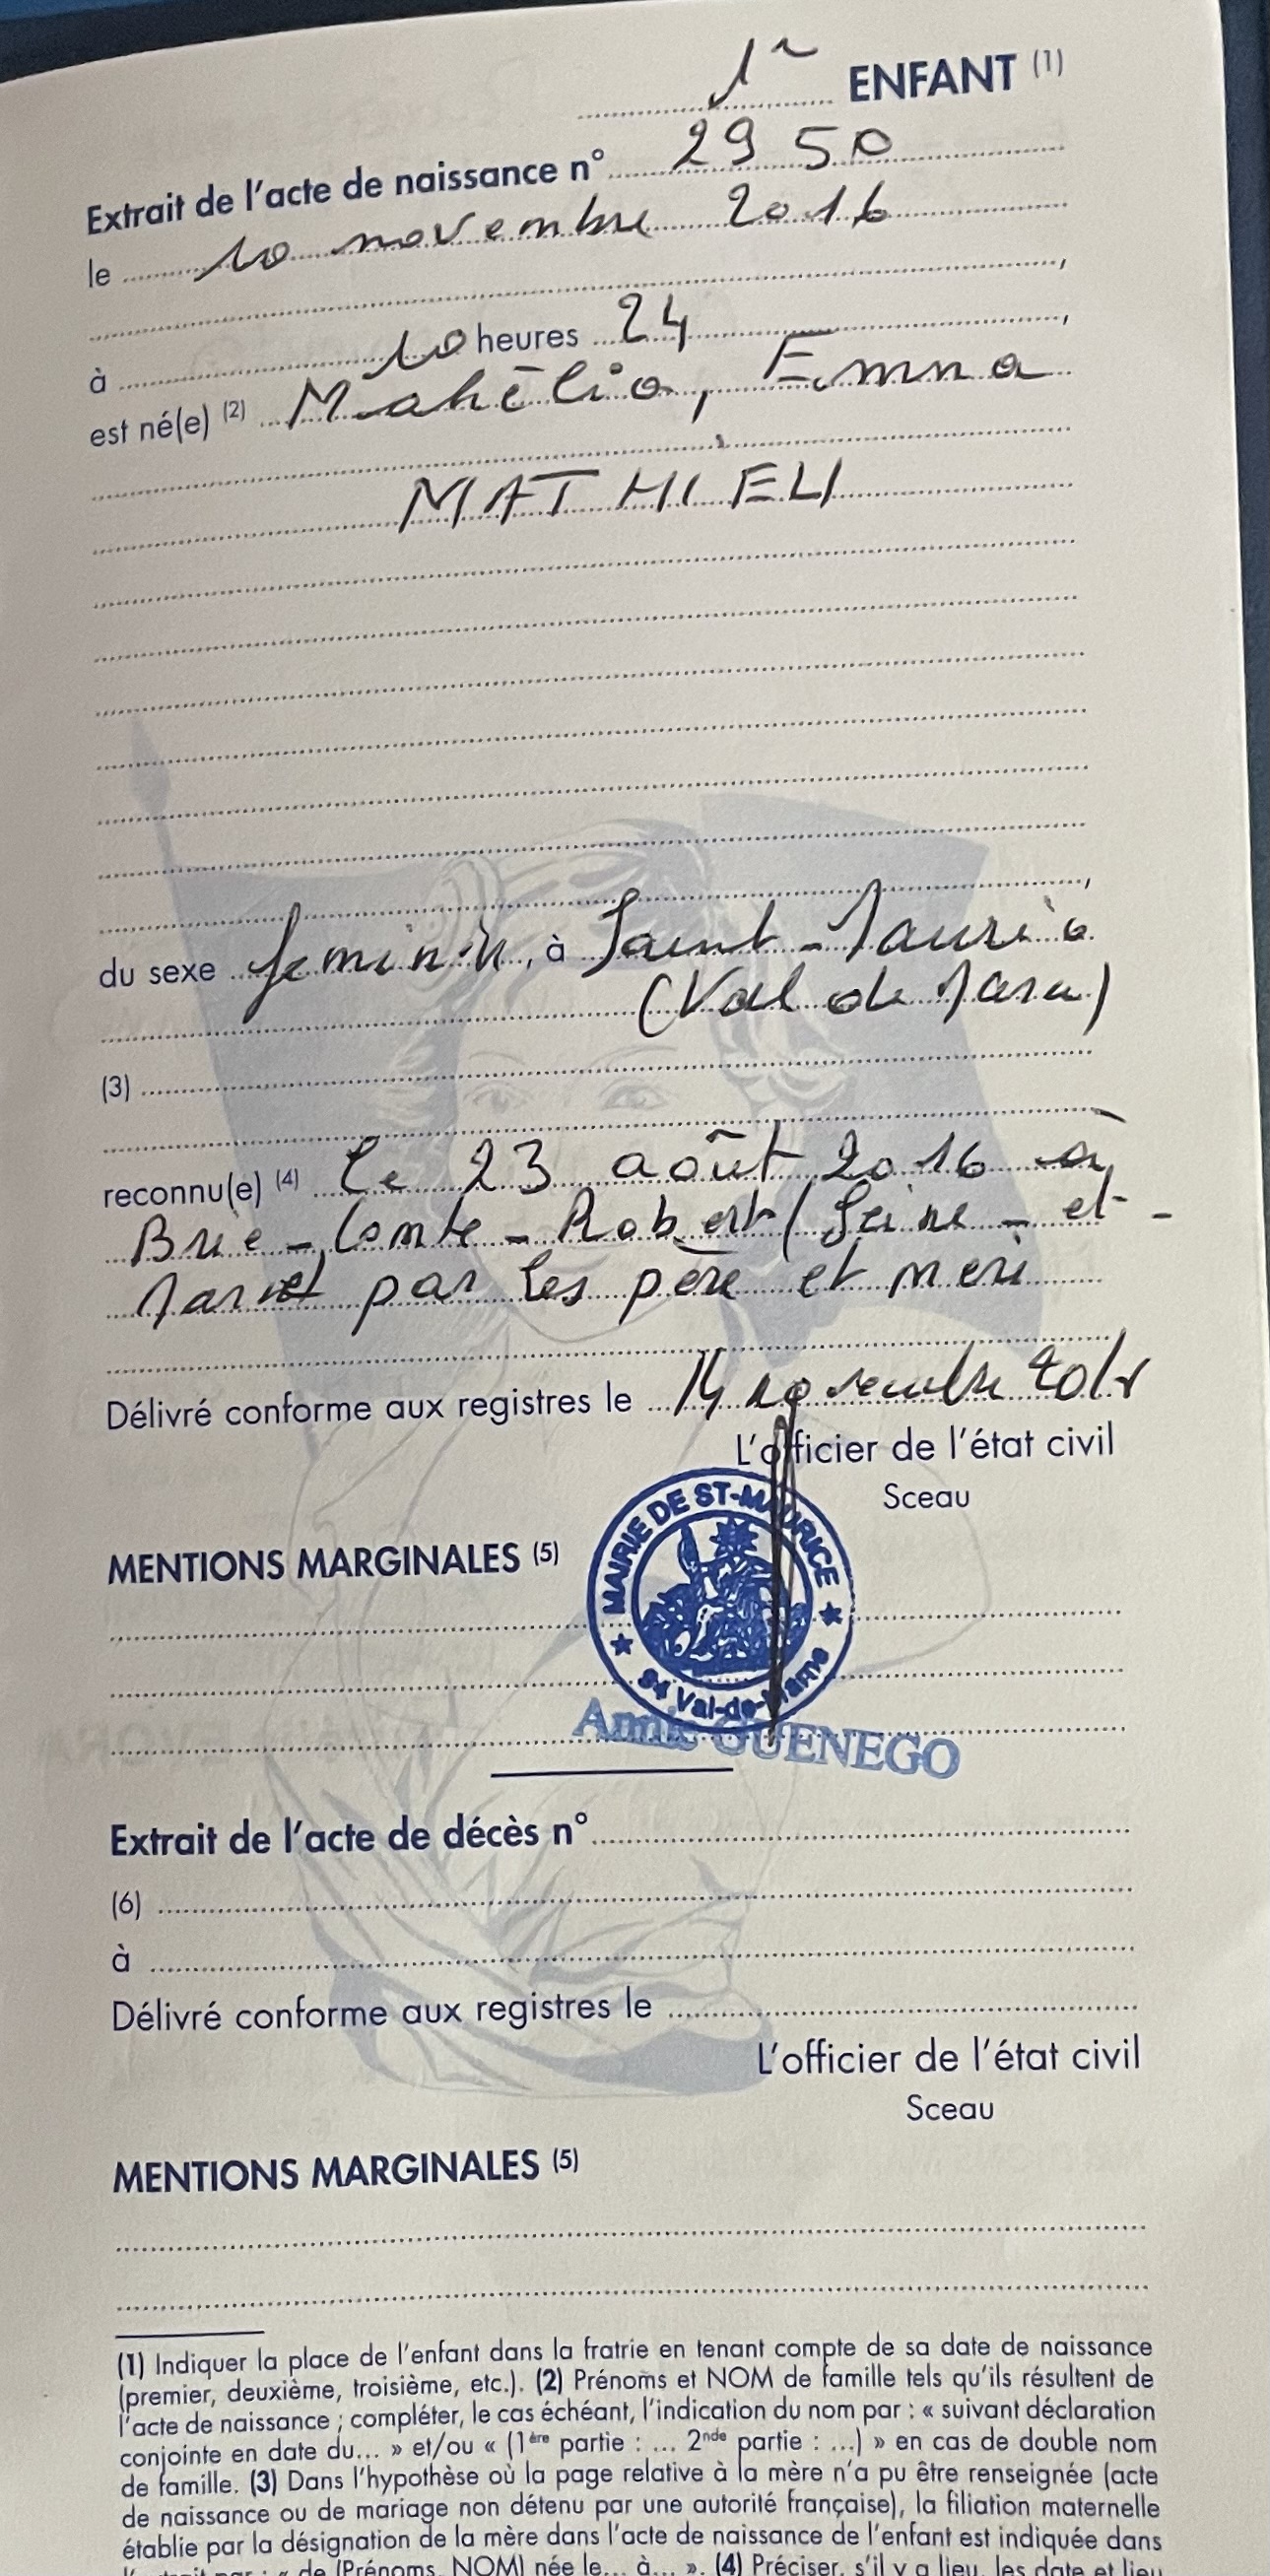 1er ENFANT (1)
Extrait de l'acte de naissance n° 2950
le 10 novembre 2016
à 10 heures 24,
est né(e) (2) Mahélia, Emma
MATHIEU
du sexe feminin, à Saint-Maurice
(Val de Marne)
(3)
reconnu(e) (4) le 23 août 2016 à
Brie-Comte-Robert (Seine-et-
Marne) par les père et mère
Délivré conforme aux registres le 14 novembre 2016
L'officier de l'état civil
Sceau
MAIRIE DE ST-MAURICE
94 Val-de-Marne
MENTIONS MARGINALES (5)
Annie GUENEGO
Extrait de l'acte de décès n°
(6)
à
Délivré conforme aux registres le
L'officier de l'état civil
Sceau
MENTIONS MARGINALES (5)
(1) Indiquer la place de l'enfant dans la fratrie en tenant compte de sa date de naissance
(premier, deuxième, troisième, etc.). (2) Prénoms et NOM de famille tels qu'ils résultent de
l'acte de naissance ; compléter, le cas échéant, l'indication du nom par : « suivant déclaration
conjointe en date du... » et/ou « (1ère partie : ... 2nde partie : ...) » en cas de double nom
de famille. (3) Dans l'hypothèse où la page relative à la mère n'a pu être renseignée (acte
de naissance ou de mariage non détenu par une autorité française), la filiation maternelle
établie par la désignation de la mère dans l'acte de naissance de l'enfant est indiquée dans
l'extrait par : « de (Prénoms, NOM) née le... à... ». (4) Préciser, s'il y a lieu, les date et lieu